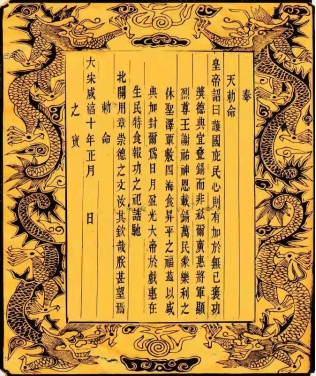 奉
天勅命
皇帝詔曰護國庇民心則有加於無已褒功
獎德典宜疊錫而非祗爾廣惠將軍顯
烈尊王謝祐神恩載錫萬民樂利之
休聖澤覃敷四海食昇平之福茲以咸
典加封爾為日月盈光大帝於戲惠在
生民特食報功之祀誥馳
北闕用章崇德之文汝其欽哉朕甚望焉
勅命
大宋咸淳十年正月 日
之寶